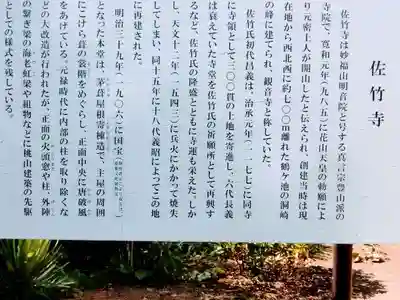 佐竹寺
佐竹寺は妙福山明音院と号する真言宗豊山派の
寺院で、寛和元年(九八五)に花山天皇の勅願によ
り元密上人が開山したと伝えられ、創建当時は現
在地から西北西に約七〇〇m離れた鶴ヶ池の洞崎
の峰に建てられ、観音寺と称していた。
佐竹氏初代昌義は、治承元年(一一七七)に同寺
に寺領として三〇〇貫の土地を寄進し、六代長義
は衰えていた寺堂を佐竹氏の祈願所として再興す
るなど、佐竹氏の隆盛とともに寺運も栄えた。しか
し、天文十二年(一五四三)に兵火にかかって焼失
してしまい、同十五年に十八代義昭によってこの地
に再建された。
明治三十九年(一九〇六)に国宝
となった本堂は、茅葺屋根寄棟造で、主屋の周囲
にこけら葺の裳階をめぐらし、正面中央に唐破風
をあげている。元禄時代に内部の柱を取り除くな
どの大改造が行われたが、正面の火頭窓や柱、外陣
の繋ぎ梁の海老虹梁や組物などに桃山建築の先駆
としての様式を残している。